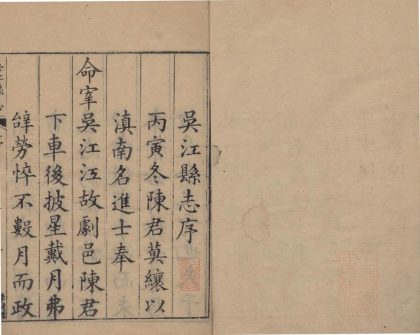 吳江縣志序
丙寅冬陳君莫纕以
滇南名進士奉
命宰吳江江故劇邑陳君
下車後披星戴月弗
辤勞悴不數月而政